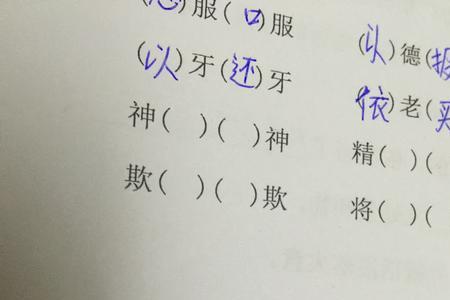 服(口)服 (以)德(报
(以)牙(还)牙 (依)老(卖
神( )( )神 精( )(
欺( )( )欺 将( )(